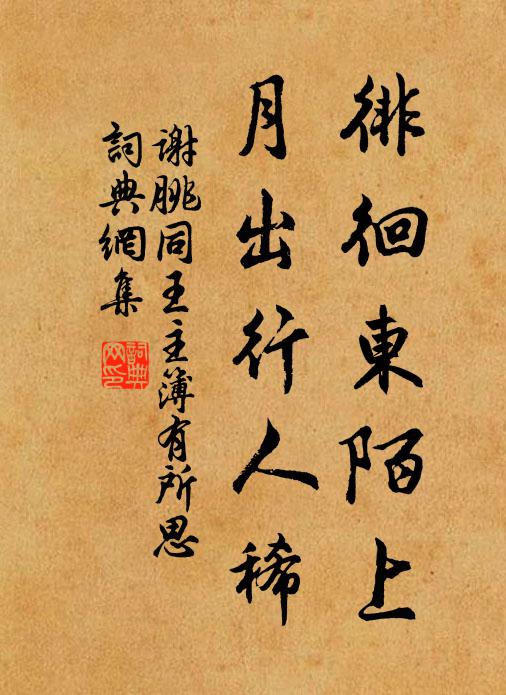 徘徊東陌上
月出行人稀
谢朓同王主簿有所思
詞典網集
詞典网印